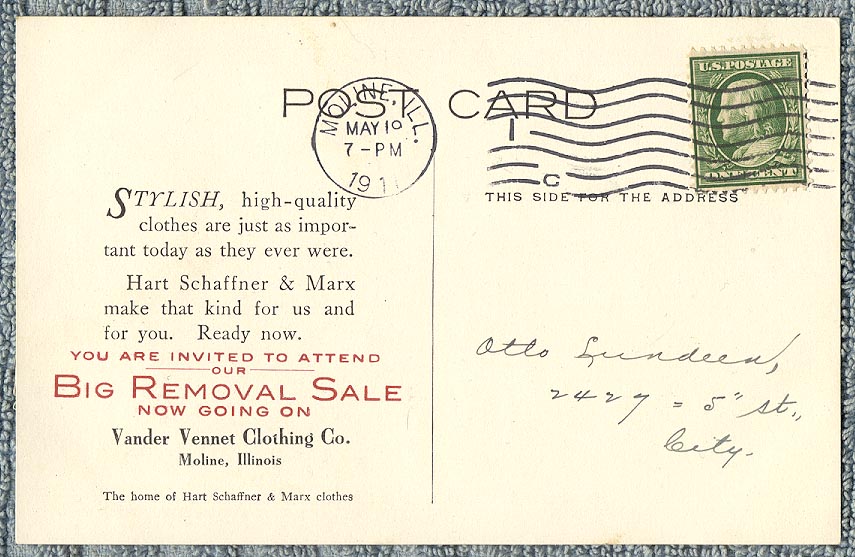 POST CARD
MOLINE, ILL.
MAY 19
7-PM
1911
1
C
U.S. POSTAGE
ONE CENT
THIS SIDE FOR THE ADDRESS
STYLISH, high-quality
clothes are just as impor-
tant today as they ever were.
Hart Schaffner & Marx
make that kind for us and
for you. Ready now.
YOU ARE INVITED TO ATTEND
OUR
BIG REMOVAL SALE
NOW GOING ON
Vander Vennet Clothing Co.
Moline, Illinois
The home of Hart Schaffner & Marx clothes
Otto Lundeen,
2427 = 5" St.,
City.